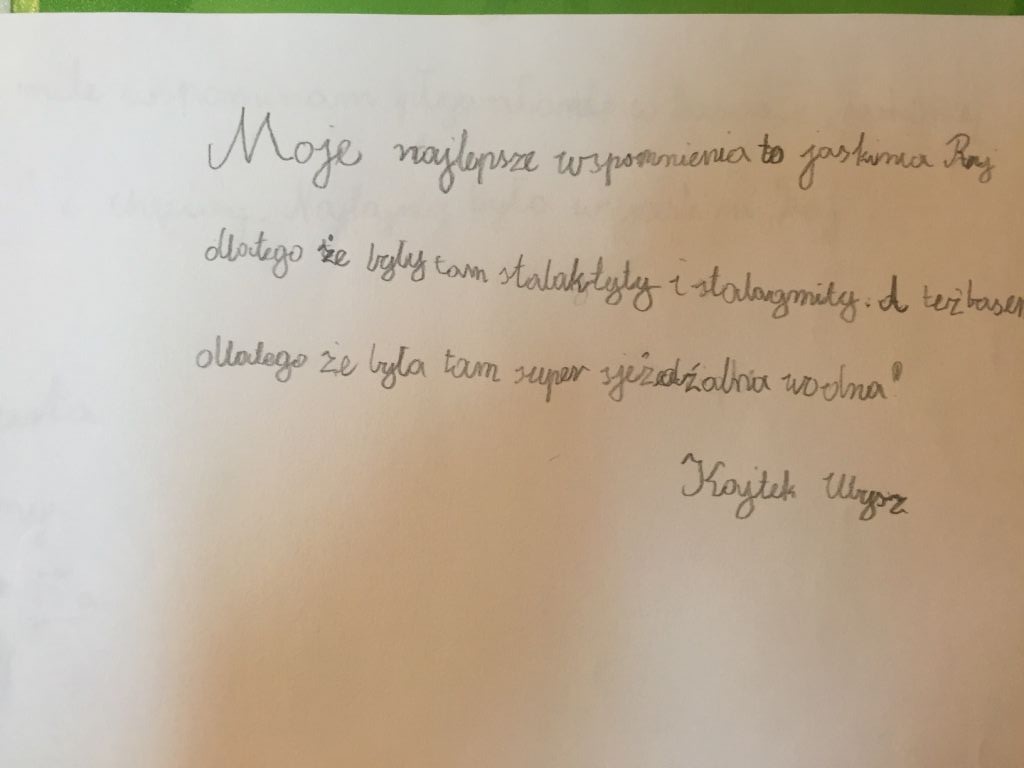 Moje najlepsze wspomnienia to jaskinia Raj
dlatego że były tam stalaktyty i stalagmity. A też basen
dlatego że była tam super sjeżdżalnia wodna!
Kajtek